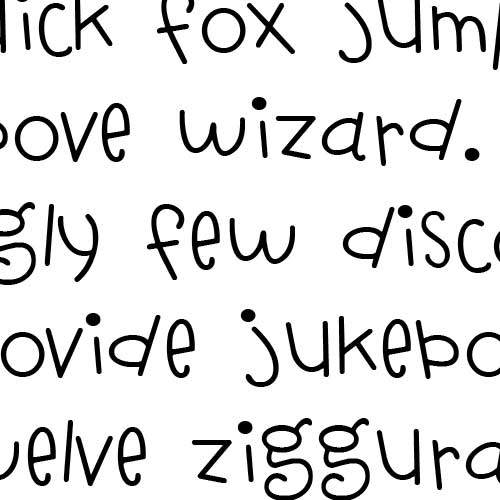 uick fox jump
bove wizard.
gly few disco
ovide jukebo
uelve ziggura